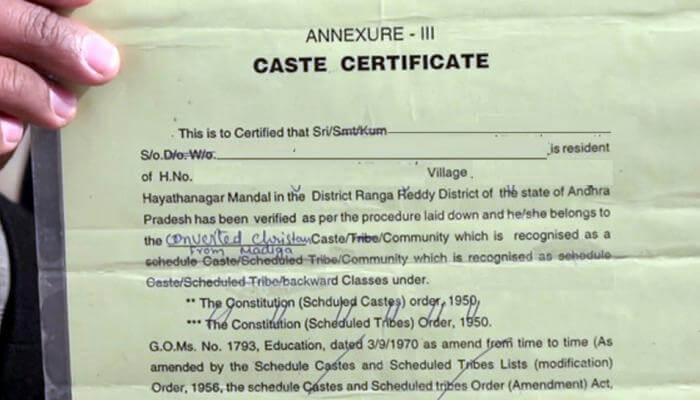 ANNEXURE - III
CASTE CERTIFICATE
This is to Certified that Sri/Smt/Kum
S/o.D/o. W/o. is resident
of H.No. Village
Hayathanagar Mandal in the District Ranga Reddy District of the state of Andhra
Pradesh has been verified as per the procedure laid down and he/she belongs to
the Converted Christian Caste/Tribe/Community which is recognised as a
From Madiga
schedule Caste/Scheduled Tribe/Community which is recognised as schedule
Caste/Scheduled Tribe/backward Classes under.
** The Constitution (Schduled Castes) order, 1950,
*** The Constitution (Scheduled Tribes) Order, 1950.
G.O.Ms. No. 1793, Education, dated 3/9/1970 as amend from time to time (As
amended by the Schedule Castes and Scheduled Tribes Lists (modification)
Order, 1956, the schedule Castes and Scheduled tribes Order (Amendment) Act,